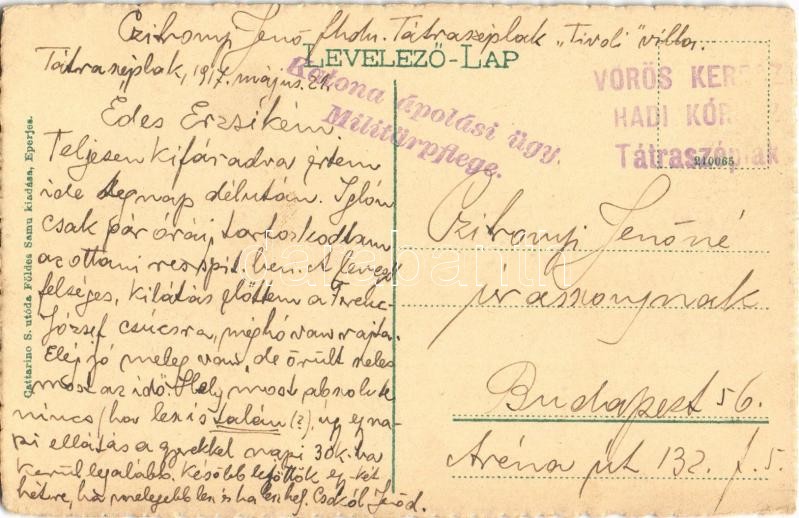 Czitronyi Jenő fhdn. Tátraszéplak „Tivoli" villa.
LEVELEZŐ-LAP
Tátraszéplak, 1917. május. 21.
Katona ápolási ügy.
Militärpflege.
VÖRÖS KERESZT
HADI KÓR
Tátraszéplak
210065
Édes Erzsikém.
Teljesen kifáradva értem
ide tegnap délután. Iglón
csak pár óráig tartozkodtam
az ottani reszpitben. A levegő
felséges, kilátás előttem a Ferenc
József csúcsra, még hó van rajta.
Eléj jó meleg van, de őrült szeles
most az idő. Hely most absolute
nincs (ha lenis talán (?), úgy egy na-
pi ellátás a gyerekkel napi 30 k.-ba
kerül legalább. Később lejöttök egy-két
hétre, ha melegebb lesz is ha lesz hely. Csókol Jenőd.
Czitronyi Jenőné
úrasszonynak
Budapest 56.
Aréna út 132. f. 5.
Cattarino S. utóda Földes Samu kiadása, Eperjes.
darabanth